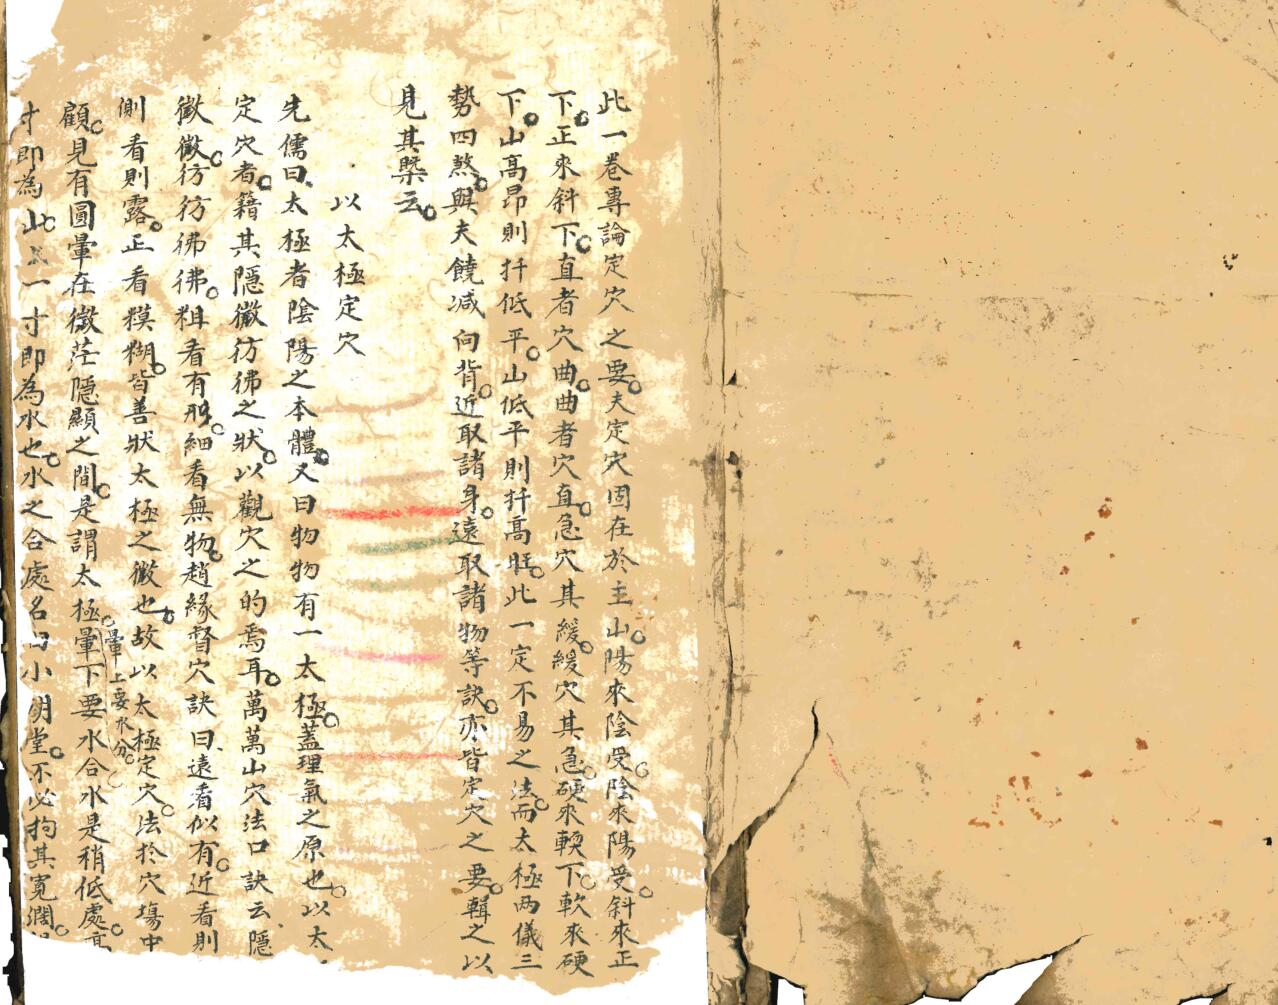 此一卷專論定穴之要夫定穴固在於主山陽來陰受陰來陽受斜來正
下正來斜下直者穴曲曲者穴直急穴其緩緩穴其急硬來輭下軟來硬
下山高昂則扦低平山低平則扦高旺此一定不易之法而太極両儀三
勢四煞與夫饒减向背近取諸身遠取諸物等訣亦皆定穴之要輯之以
見其槩云
以太極定穴
先儒曰太極者陰陽之本體又曰物物有一太極蓋理氣之原也以太
定穴者籍其隱微彷彿之狀以觀穴之的焉耳萬萬山穴法口訣云隱
微微彷彷彿彿粗看有形細看無物趙緣督穴訣曰遠看似有近看則
側看則露正看糢糊皆善狀太極之微也故以太極定穴法於穴塲中
顧見有圓暈在微茫隱顯之間是謂太極暈暈上要水分下要水合水是稍低處高
寸即為山一寸即為水也水之合處名曰小明堂不必拘其寬濶